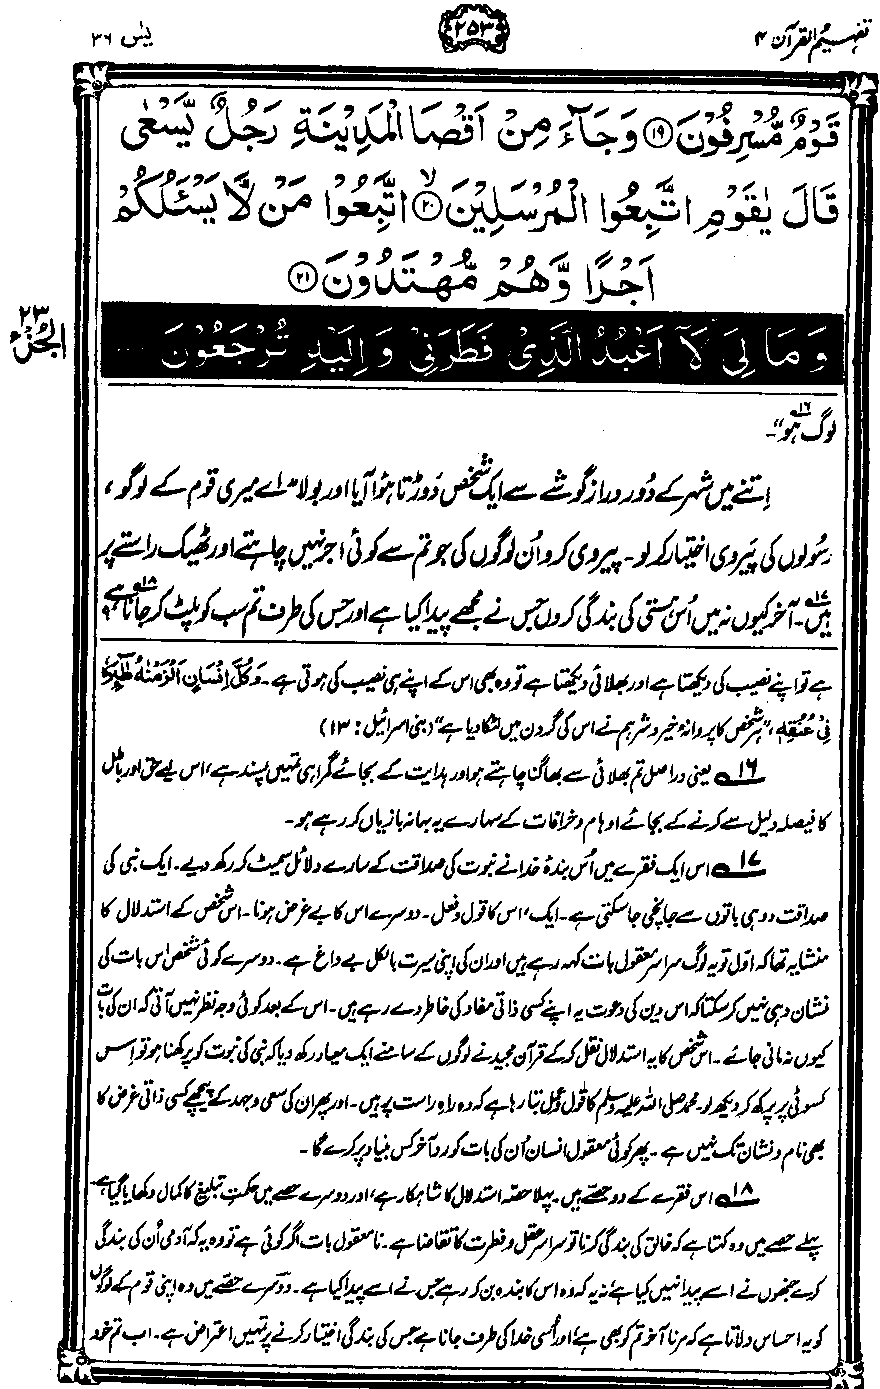 تفہیم القرآن ۴
۲۵۳
یٰسٓ ۳۶
قَوْمٌ مُّسْرِفُوْنَ ۝۱۹ وَجَآءَ مِنْ اَقْصَا الْمَدِيْنَةِ رَجُلٌ يَّسْعٰى
قَالَ يٰقَوْمِ اتَّبِعُوا الْمُرْسَلِيْنَ ۝۲۰ۙ اتَّبِعُوْا مَنْ لَّا يَسْـَٔلُكُمْ
اَجْرًا وَّهُمْ مُّهْتَدُوْنَ ۝۲۱
الجزء ۲۳
وَمَا لِيَ لَآ اَعْبُدُ الَّذِيْ فَطَرَنِيْ وَاِلَيْهِ تُرْجَعُوْنَ
لوگ ہو"۔ ۱۶
اِتنے میں شہر کے دُور دراز گوشے سے ایک شخص دَوڑتا ہوا آیا اور بولا "اے میری قوم کے لوگو،
رسُولوں کی پَیروی اختیار کر لو۔ پیروی کرو اُن لوگوں کی جو تم سے کوئی اجر نہیں چاہتے اور ٹھیک راستے پر
ہیں۔ ۱۷ آخر کیوں نہ میں اُس ہستی کی بندگی کروں جس نے مجھے پیدا کیا ہے اور جس کی طرف تم سب کو پلٹ کر جانا ہے؟ ۱۸
ہے تو اپنے نصیب کی دیکھتا ہے اور بھلائی دیکھتا ہے تو وہ بھی اس کے اپنے ہی نصیب کی ہوتی ہے۔ وَكُلَّ اِنْسَانٍ اَلْزَمْنٰهُ طٰٓئِرَهٗ
فِيْ عُنُقِهٖ، "ہر شخص کا پروانۂ خیر و شر ہم نے اس کی گردن میں لٹکا دیا ہے" (بنی اسرائیل: ۱۳)
۱۶ یعنی دراصل تم بھلائی سے بھاگنا چاہتے ہو اور ہدایت کے بجائے گمراہی تمہیں پسند ہے، اس لیے حق اور باطل
کا فیصلہ دلیل سے کرنے کے بجائے اوہام و خرافات کے سہارے یہ بہانہ بازیاں کر رہے ہو۔
۱۷ اس ایک فقرے میں اُس بندۂ خدا نے نبوت کی صداقت کے سارے دلائل سمیٹ کر رکھ دیے۔ ایک نبی کی
صداقت دو ہی باتوں سے جانچی جا سکتی ہے۔ ایک، اس کا قول و فعل۔ دوسرے اس کا بے غرض ہونا۔ اس شخص کے استدلال کا
منشا یہ تھا کہ اول تو یہ لوگ سراسر معقول بات کہہ رہے ہیں اور ان کی اپنی سیرت بالکل بے داغ ہے۔ دوسرے کوئی شخص اس بات کی
نشان دہی نہیں کر سکتا کہ اس دین کی دعوت یہ اپنے کسی ذاتی مفاد کی خاطر دے رہے ہیں۔ اس کے بعد کوئی وجہ نظر نہیں آتی کہ ان کی بات
کیوں نہ مانی جائے۔ اس شخص کا یہ استدلال نقل کر کے قرآن مجید نے لوگوں کے سامنے ایک معیار رکھ دیا کہ نبی کی نبوت کو پرکھنا ہو تو اِس
کسوٹی پر پرکھ کر دیکھ لو۔ محمد صلی اللہ علیہ وسلم کا قول و عمل بتا رہا ہے کہ وہ راہ راست پر ہیں۔ اور پھر ان کی سعی و جہد کے پیچھے کسی ذاتی غرض کا
بھی نام و نشان تک نہیں ہے۔ پھر کوئی معقول انسان اُن کی بات کو رد آخر کس بنیاد پر کرے گا۔
۱۸ اس فقرے کے دو حصے ہیں۔ پہلا حصہ استدلال کا شاہکار ہے، اور دوسرے حصے میں حکمتِ تبلیغ کا کمال دکھایا گیا ہے۔
پہلے حصے میں وہ کہتا ہے کہ خالق کی بندگی کرنا تو سراسر عقل و فطرت کا تقاضا ہے۔ نامعقول بات اگر کوئی ہے تو وہ یہ کہ آدمی اُن کی بندگی
کرے جنھوں نے اسے پیدا نہیں کیا ہے، نہ یہ کہ وہ اس کا بندہ بن کر رہے جس نے اسے پیدا کیا ہے۔ دوسرے حصے میں وہ اپنی قوم کے لوگوں
کو یہ احساس دلاتا ہے کہ مرنا آخر تم کو بھی ہے، اور اُسی خدا کی طرف جانا ہے جس کی بندگی اختیار کرنے پر تمہیں اعتراض ہے۔ اب تم خود